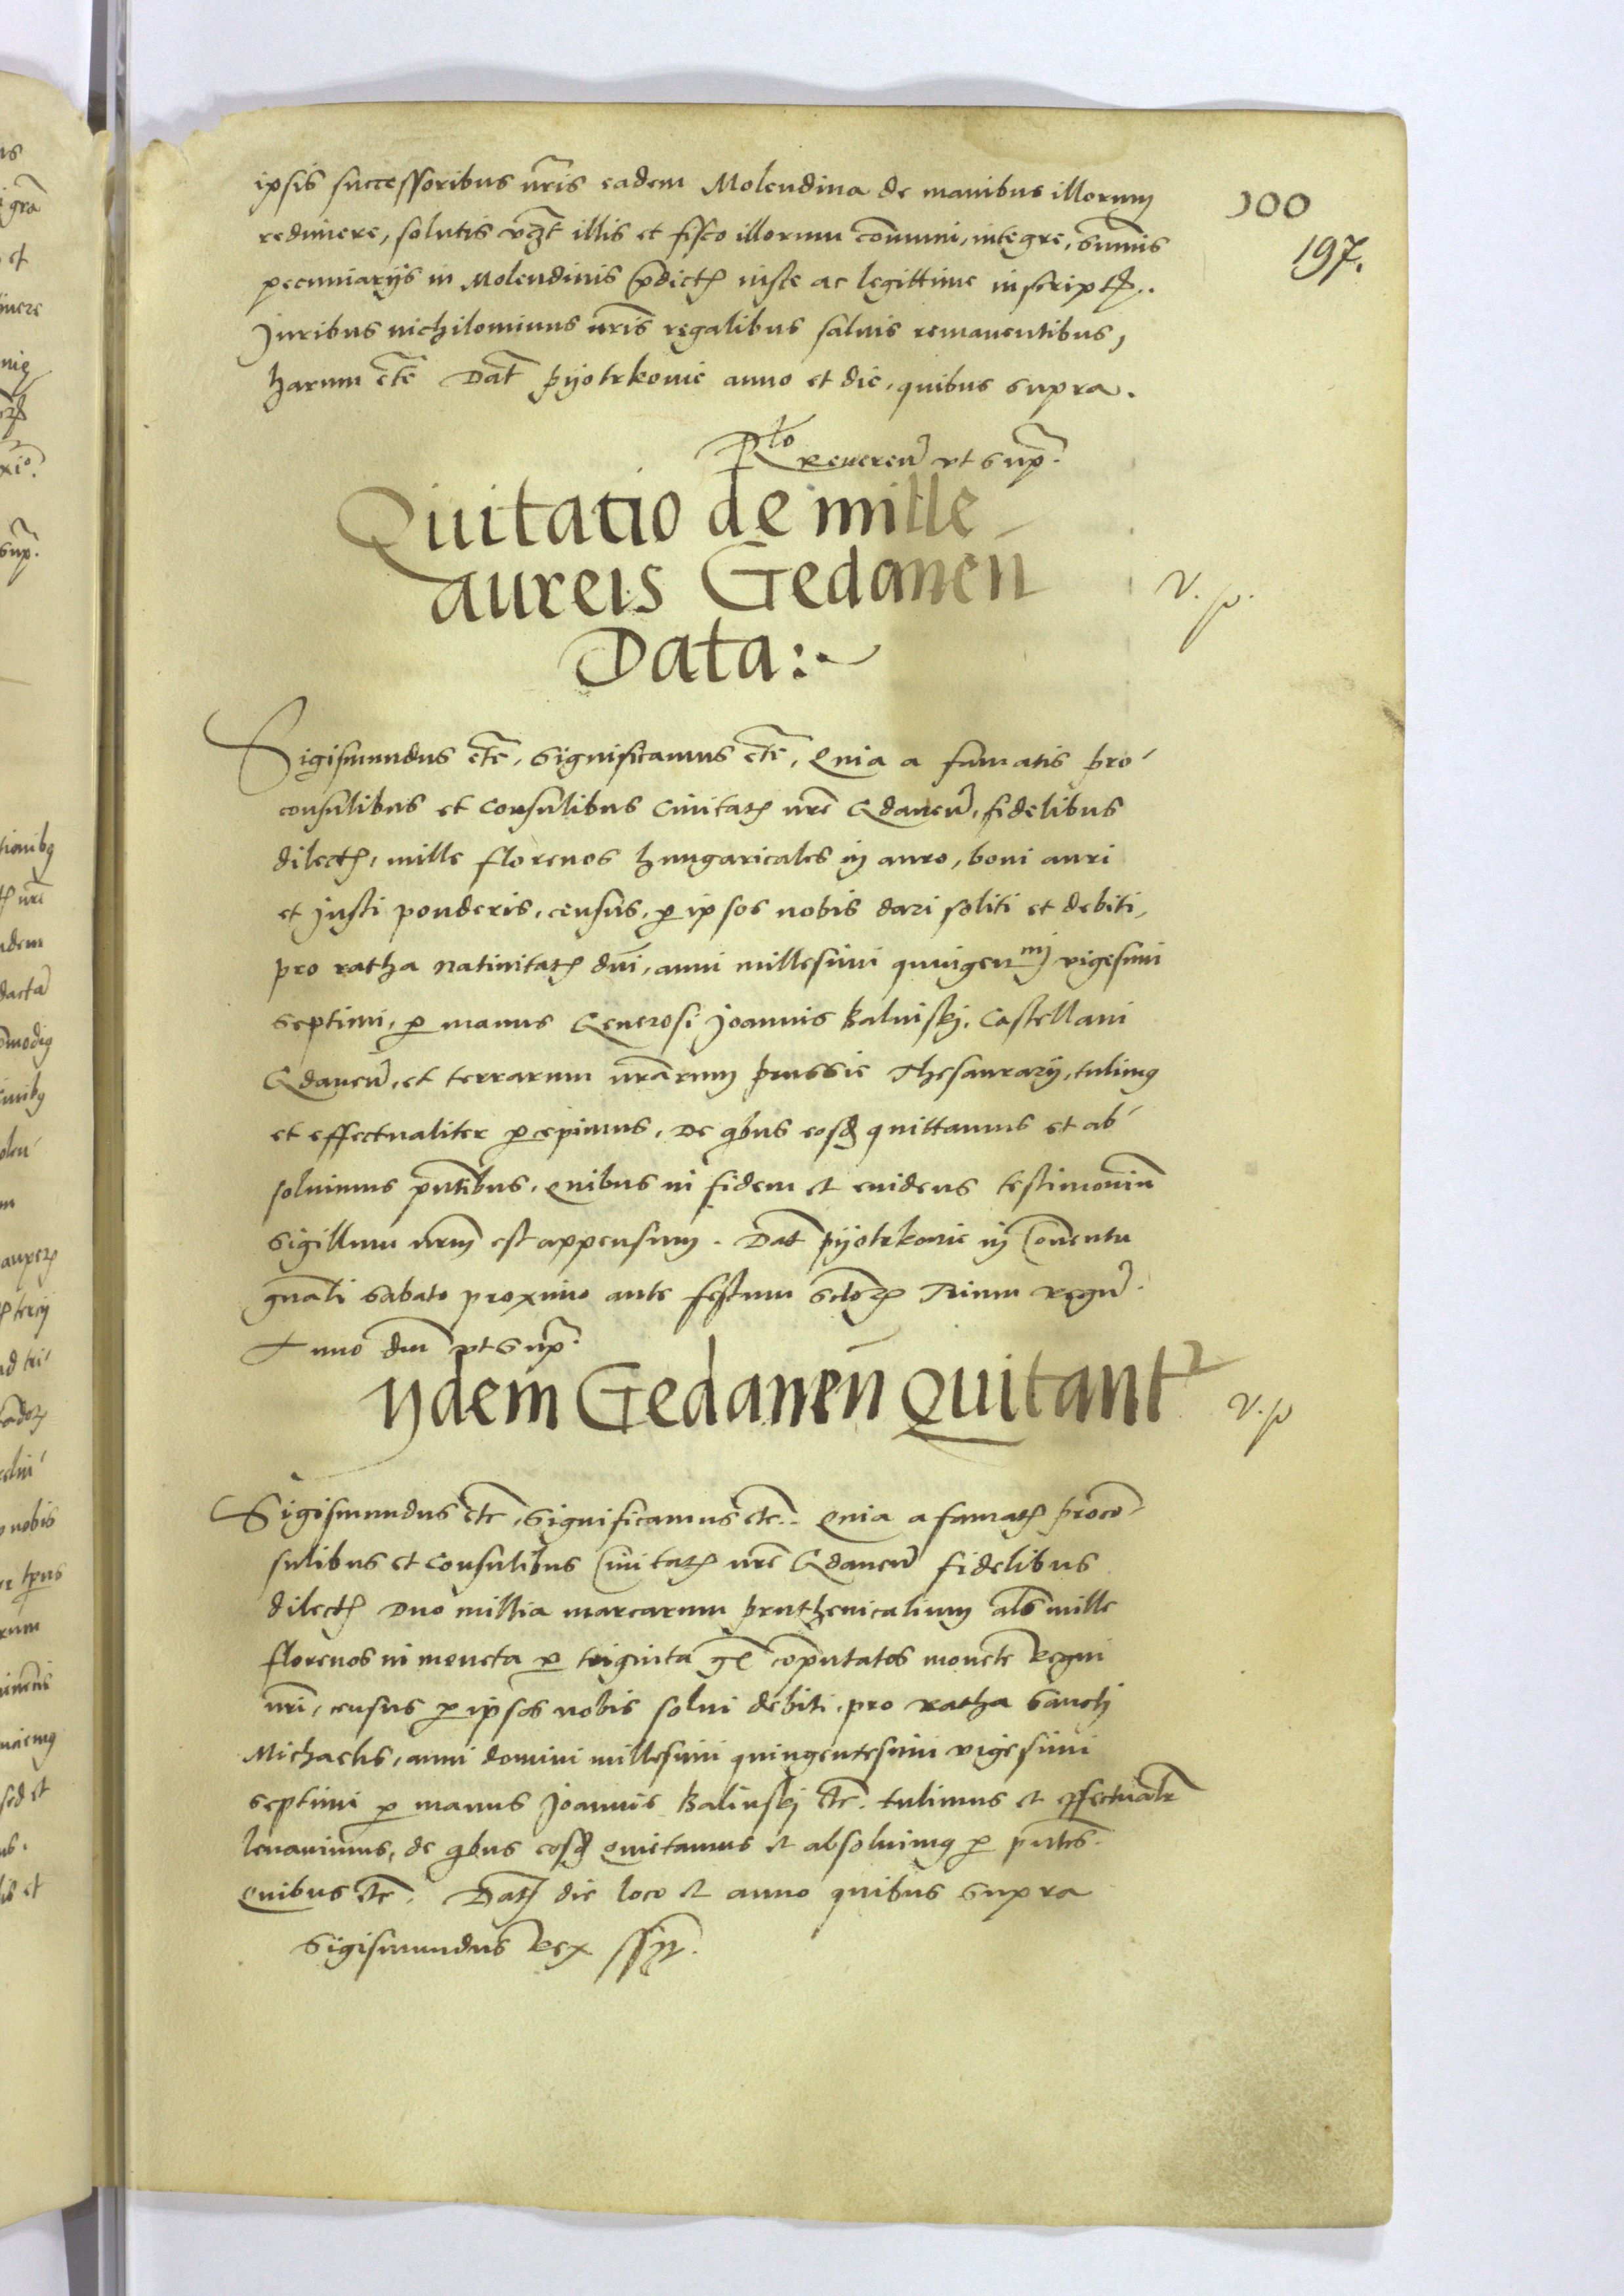 ipsis successoribus nr̄is eadem Molendina de manibus illorum
redimere, solutis vz̄t illis et fisco illorum com̄uni, integre, sum̄is
pecuniarijs in Molendinis p̄dictꝭ iuste ac legittime inscriptꝭ.
Juribus nichilominus nr̄is regalibus saluis remanentibus,
harum etc̄ Dat̄ pijotrkouie anno et die, quibus supra.
300
197.
R̄lo Reueren̄ vt sup̄.
Quitatio de mille
aureis Gedanen̄
Data:~
v. p.
Sigismundus etc̄, Significamus etc̄, Quia a famatis pro-
consulibus et Consulibus Ciuitatꝭ nr̄e Gdanen̄, fidelibus
dilectꝭ, mille florenos hungaricales in auro, boni auri
et justi ponderis, census, ꝑ ipsos nobis dari soliti et debiti,
pro ratha natiuitatꝭ dn̄i, anni millesimi quingenmi vigesimi
septimi, ꝑ manus Generosi Joannis Balinskj, Castellani
Gdanen̄, et terrarum nr̄arum prussie Thesaurarij, tulimus
et effectualiter ꝑcepimus, De qbus eosdꝫ quittamus et ab-
soluimus pn̄tibus, Quibus in fidem et euidens testimoniū
Sigillum nr̄m est appensum. Dat̄ pijotrkouie in Conuentu
gn̄ali Sabato proximo ante festum sctoꝝ Trium regū.
Anno dn̄i vt sup̄.
ijdem Gedanen̄ Quitant
v. p
Sigismundus etc̄, Significamus etc̄. Quia a famatꝭ proco-
sulibus et Consulibus Ciuitatꝭ nr̄e Gdanen̄ fidelibus
dilectꝭ Duo millia marcarum pruthenicalium al̄s mille
florenos in moneta ꝑ triginta gꝭ computatos monete Regni
nr̄i, census ꝑ ipsos nobis solui debiti, pro ratha Sancti
Michaelis, anni domini millesimi quingentesimi vigesimi
septimi ꝑ manus Joannis Balinskj etc̄. tulimus et effectualr̄
leuauimus, de qbus eosdꝫ quietamus et absoluimus ꝑ pn̄tes.
Quibus etc̄. Dat̄ die loco et anno quibus supra
Sigismundus Rex sspt.